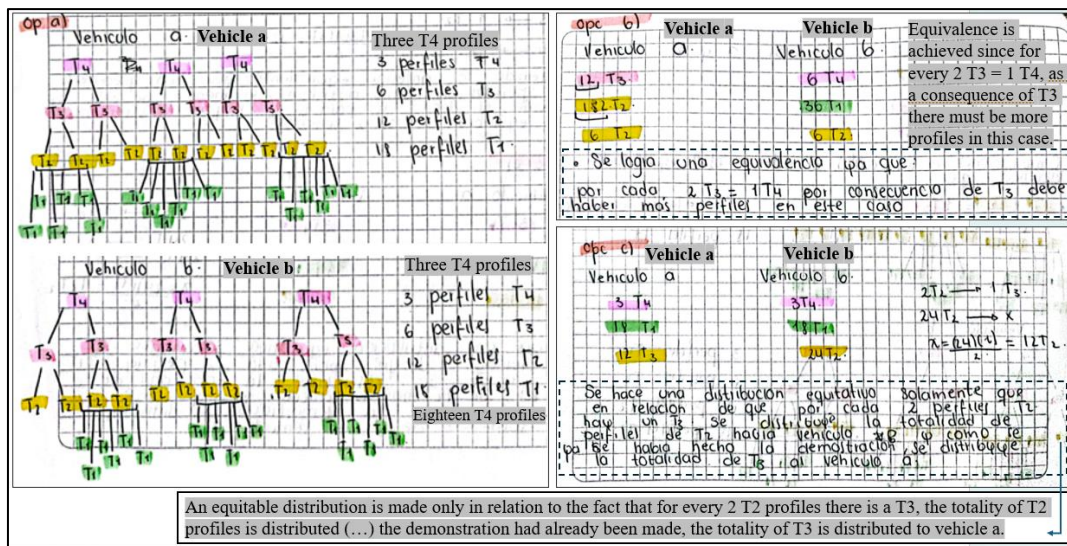 op a)
Vehiculo a. Vehicle a
Three T4 profiles
T4 T4 T4
3 perfiles T4
6 perfiles T3
12 perfiles T2
18 perfiles T1.
T3 T3 T3 T3 T3 T3
T2 T2 T2 T2 T2 T2 T2 T2 T2 T2 T2 T2
T1 T1 T1 T1 T1 T1 T1 T1 T1 T1 T1 T1 T1 T1 T1 T1 T1 T1
Vehiculo b. Vehicle b
Three T4 profiles
T4 T4 T4
3 perfiles T4
6 perfiles T3
12 perfiles T2
18 perfiles T1.
Eighteen T4 profiles
T3 T3 T3 T3 T3 T3
T2 T2 T2 T2 T2 T2 T2 T2 T2 T2 T2 T2
T1 T1 T1 T1 T1 T1 T1 T1 T1 T1 T1 T1 T1 T1 T1 T1 T1 T1
opc b)
Vehicle a Vehicle b
Vehiculo a. Vehiculo b.
12 T3. 6 T4
182T2 36 T1
6 T2 6 T2
Equivalence is
achieved since for
every 2 T3 = 1 T4, as
a consequence of T3
there must be more
profiles in this case.
• Se logra una equivalencia ya que:
por cada 2 T3 = 1 T4 por consecuencia de T3 debe
haber más perfiles en este caso
opc c)
Vehicle a Vehicle b
Vehiculo a Vehiculo b.
3 T4 3T4.
18 T1 18T1
12 T3 24T2.
2T2 → 1 T3.
24T2 → x
x=(24)(1)/2 = 12T2.
Se hace una distribucion equitativo solamente que
en relacion de que por cada 2 perfiles T2
hay un T3 se distribuye la totalidad de
perfiles de T2 hacia vehiculo y como se
ya se habia hecho la demostracion, se distribuye
la totalidad de T3 al vehiculo a.
An equitable distribution is made only in relation to the fact that for every 2 T2 profiles there is a T3, the totality of T2
profiles is distributed (…) the demonstration had already been made, the totality of T3 is distributed to vehicle a.